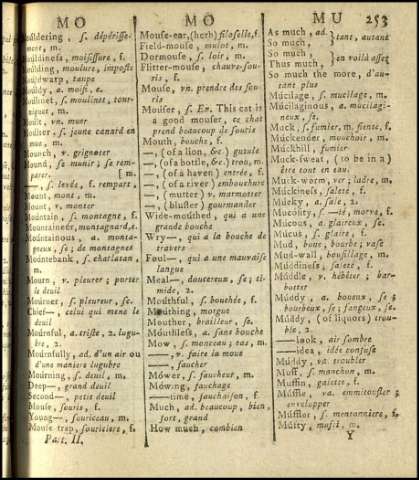 MO
Mouldering, s. dépérisse-
ment, m.
Mouldiness, moisissure, f.
Moulding, moulure, imposte
Mouldwarp, taupe
Mouldy, a. moisi, e.
s. moulinet, tour-
niquet, m.
vn. muer
s. jeune canard en
mue, m.
Mounch, v. grignoter
Mound, se munir; se rem-
parer
[m.
—, s. levée, f. rempart,
Mount, mont, m.
Mount, v. monter
Mountain, s. montagne, f.
Mountaineer, montagnard, e.
Mountainous, a. monta-
gneux, se; de montagnes
Mountebank, s. charlatan,
m.
Mourn, v. pleurer; porter
le deuil
Mourner, s. pleureur, se.
Chief—, celui qui mene le
deuil
Mournful, a. triste, 2. lugu-
bre, 2.
Mournfully, ad. d'un air ou
d'une maniere lugubre
Mourning, s. deuil, m.
Deep—, grand deuil
Second—, petit deuil
Mouse, souris, f.
Young—, souriceau, m.
Mouse trap, souriciere, f.
Part. II.
MO
Mouse-ear, (herb) filoselle, f.
Field-mouse, mulot, m.
Dormouse, s. loir, m.
Flitter-mouse, chauve-sou-
ris, f.
Mouse, vn. prendre des sou-
ris
Mouser, s. Ex. This cat is
a good mouser, ce chat
prend beaucoup de souris
Mouth, bouche, f.
—, (of a lion, &c.) gueule
—, (of a bottle, &c.) trou, m.
—, (of a haven) entrée, f.
—, (of a river) embouchure
—, (mutter) v. marmotter
—, (bluster) gourmander
Wide-mouthed, qui a une
grande bouche
Wry—, qui a la bouche de
travers
Foul—, qui a une mauvaise
langue
Meal—, doucereux, se; ti-
mide, 2.
Mouthful, s. bouchée, f.
Mouthing, morgue
Mouther, brailleur, se.
Mouthless, a. sans bouche
Mow, s. monceau; tas, m.
—, v. faire la moue
—, faucher
Mower, s. faucheur, m.
Mowing, fauchage
—time, fauchaison, f.
Much, ad. beaucoup, bien,
fort, grand
How much, combien
MU
253
As much, ad.
So much,
} tant, autant
So much,
Thus much,
} en voilà assez
So much the more, d'au-
tant plus
Mucilage, s. mucilage, m.
Mucilaginous, a. mucilagi-
neux, se.
Muck, s. fumier, m. fiente, f.
Muckender, mouchoir, m.
Muckhill, fumier
Muck-sweat, (to be in a)
être tout en eau.
Muck-worm, ver; ladre, m.
Muckiness, saleté, f.
Mucky, a. sale, 2.
Mucosity, s. —té, morve, f.
Mucous, a. glaireux, se.
Mucus, s. glaire, f.
Mud, boue, bourbe; vase
Mud-wall, bousillage, m.
Muddiness, saleté, f.
Muddle, v. hébéter; bar-
botter
Muddy, a. boueux, se;
bourbeux, se; fangeux, se.
Muddy, (of liquors) trou-
ble, 2.
—look, air sombre
—idea, idée confuse
Muddy, va. troubler
Muff, s. manchon, m.
Muffin, galette, f.
Muffle, va. emmitoufler;
envelopper
Muffler, s. mentonniere, f.
Mufty, mufti, m.
Y